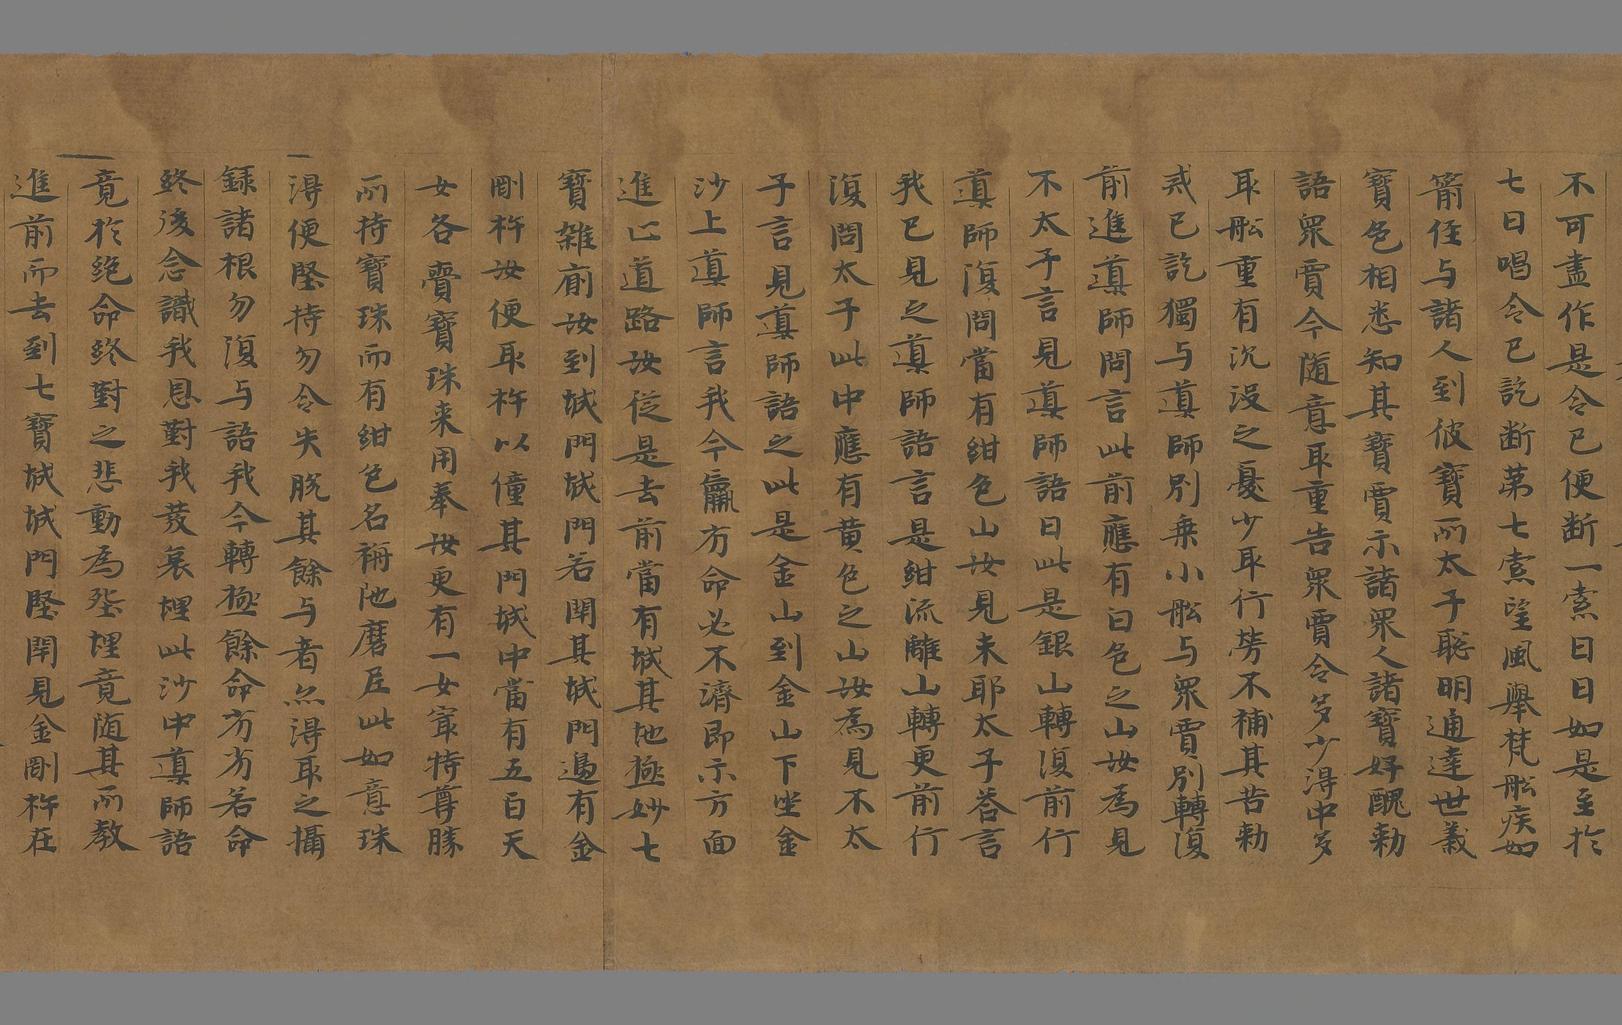 不可盡作是令已便断一索日日如是至於
七日唱令已訖断苐七索望風舉梵舩疾如
箭徃与諸人到彼寶所太子聡明通達世義
寶色相悉知其寶賈示諸衆人諸寶好醜勑
語衆賈令随意取重告衆賈令多少得中多
取舩重有沉没之憂少取行勞不補其苦勑
戒已訖獨与導師別乗小舩与衆賈別轉復
前進導師問言此前應有白色之山汝為見
不太子言見導師語曰此是銀山轉復前行
導師復問當有紺色山汝見未耶太子荅言
我已見之導師語言是紺流離山轉更前行
復問太子此中應有黄色之山汝為見不太
子言見導師語之此是金山到金山下坐金
沙上導師言我今羸劣命必不濟即示方面
進止道路汝従是去前當有城其地極妙七
寶雜廁汝到城門城門若閇其城門邊有金
剛杵汝便取杵以撞其門城中當有五百天
女各齎寶珠来用奉汝更有一女寂特尊勝
所持寶珠而有紺色名栴陁磨尼此如意珠
得便堅持勿令失脱其餘与者亦得取之攝
録諸根勿復与語我今轉極餘命方方若命
終後念識我恩對我發哀埋此沙中導師語
竟於絶命終對之悲動為殡埋竟随其所教
進前而去到七寶城城門堅閇見金剛杵在